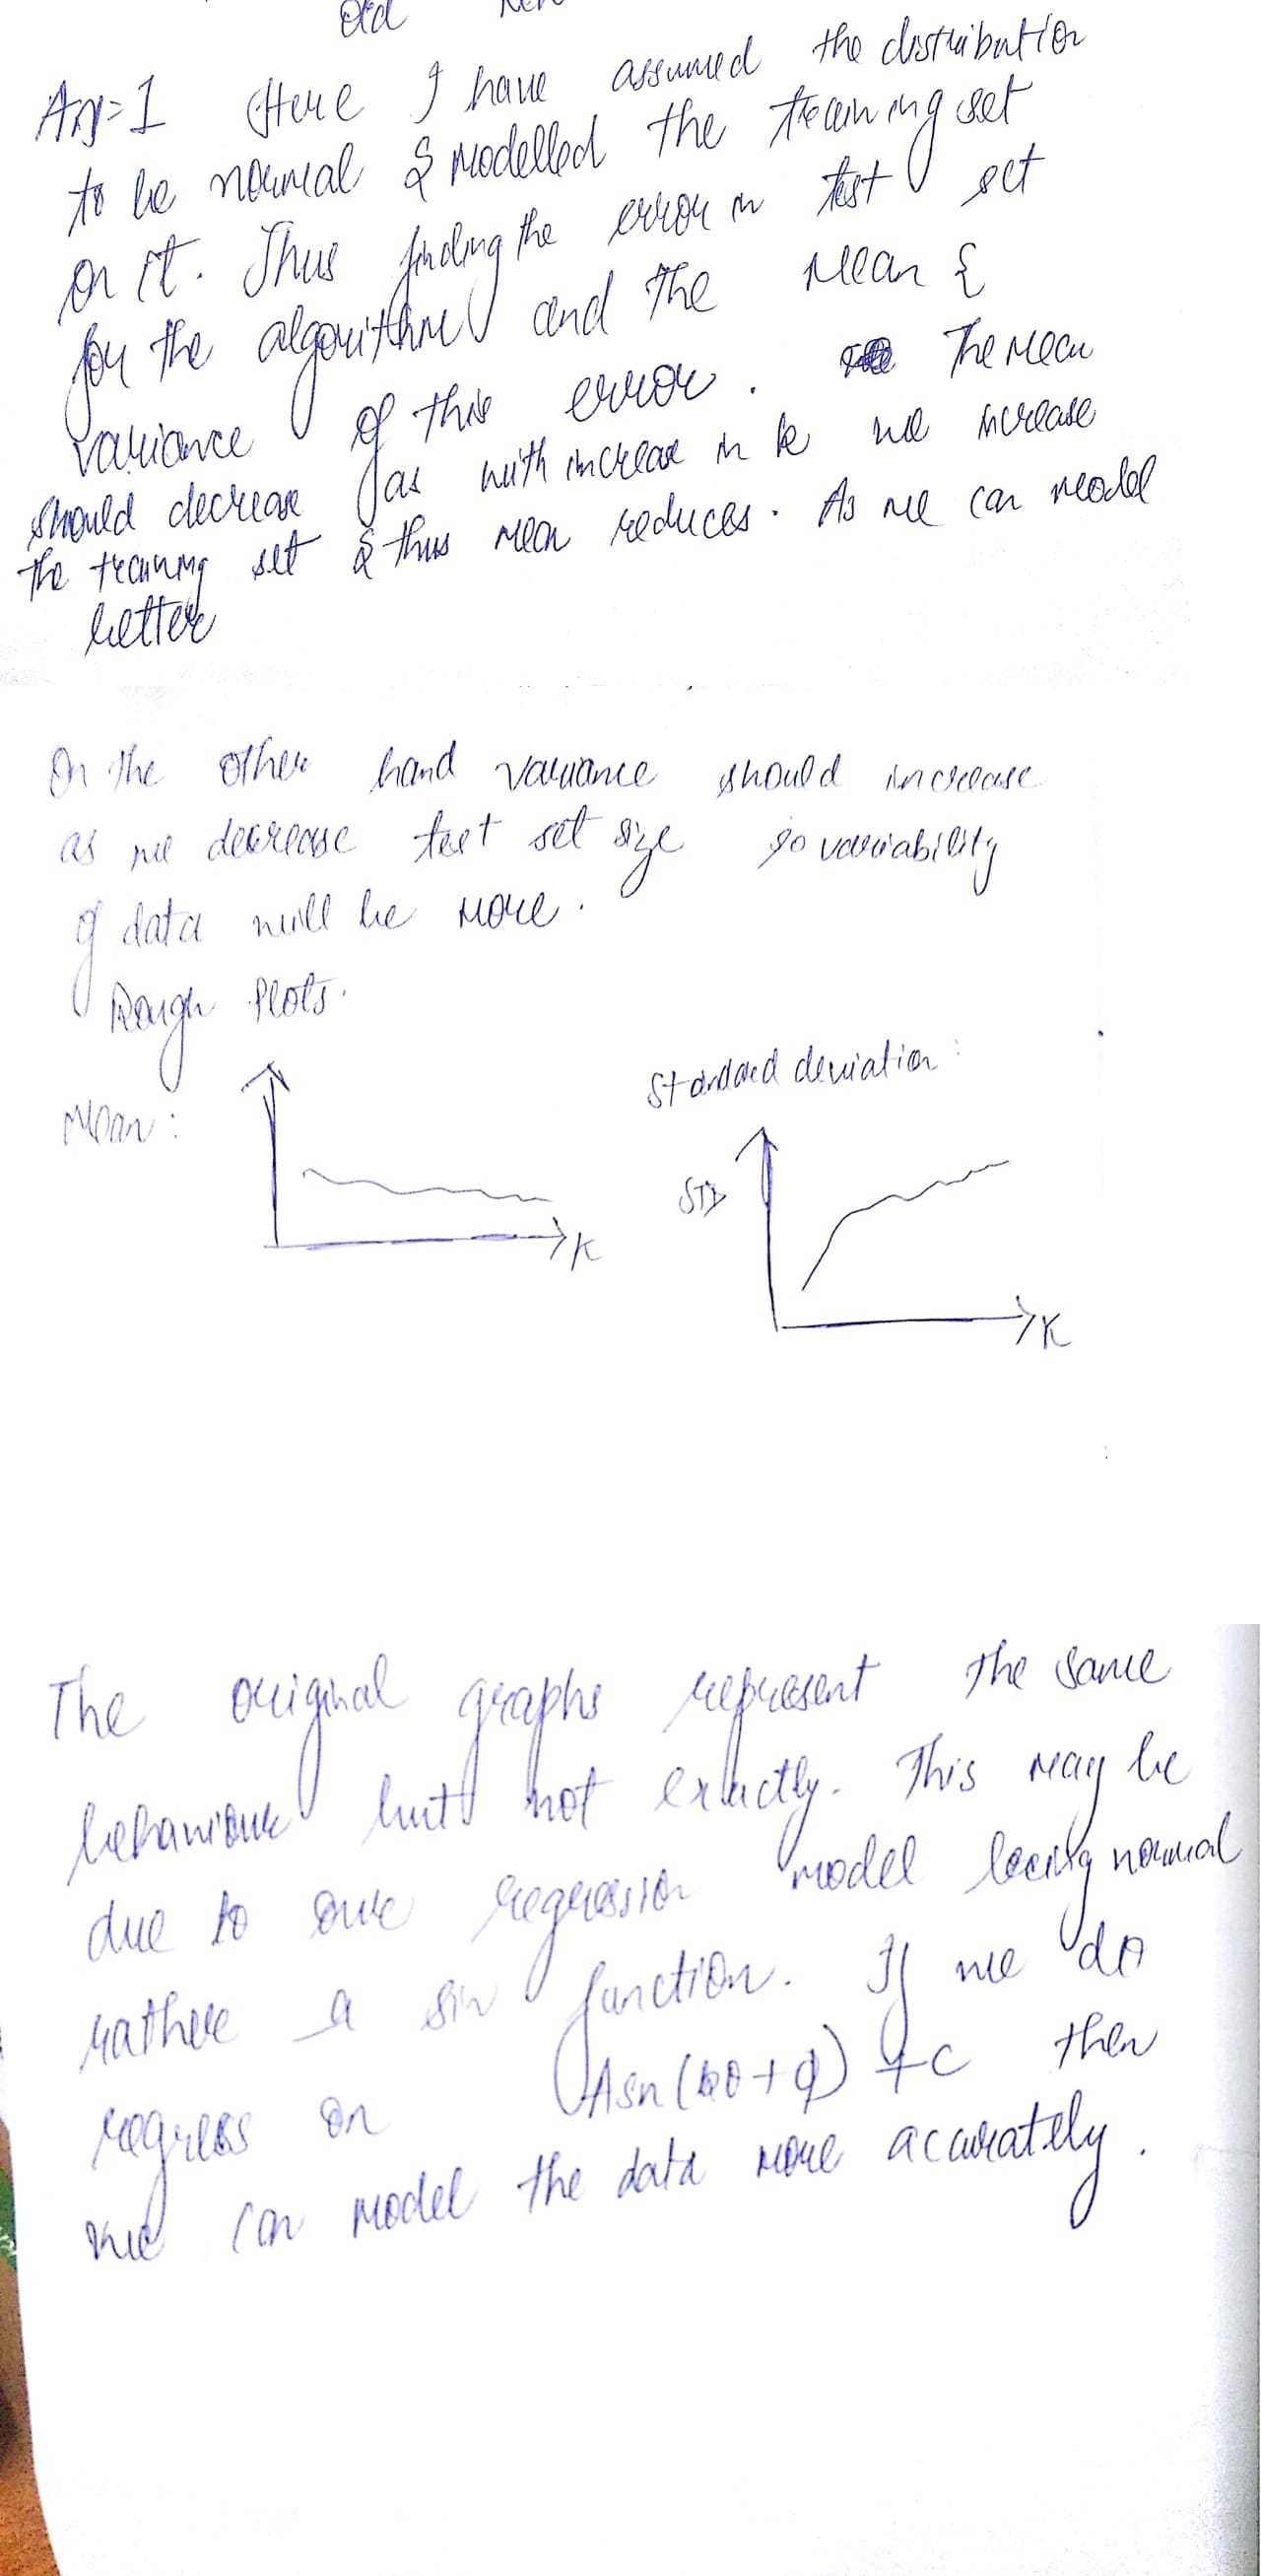 Old
Ans=1 Here I have assumed the distribution
to be normal & modelled the training set
on it. Thus finding the error in test set
for the algorithm and the mean &
variance of this error. The mean
should decrease as with increase in k we increase
the training set & thus mean reduces. As we can model
better
On the other hand variance should increase
as we decrease test set size so variability
of data will be more.
Rough Plots.
Mean:
K
Standard deviation:
STD
K
The original graphs represent the same
behaviour but not exactly. This may be
due to our regression model being normal
rather a sin function. If we do
regress on Asn(bθ+φ)+c then
we can model the data more acurately.